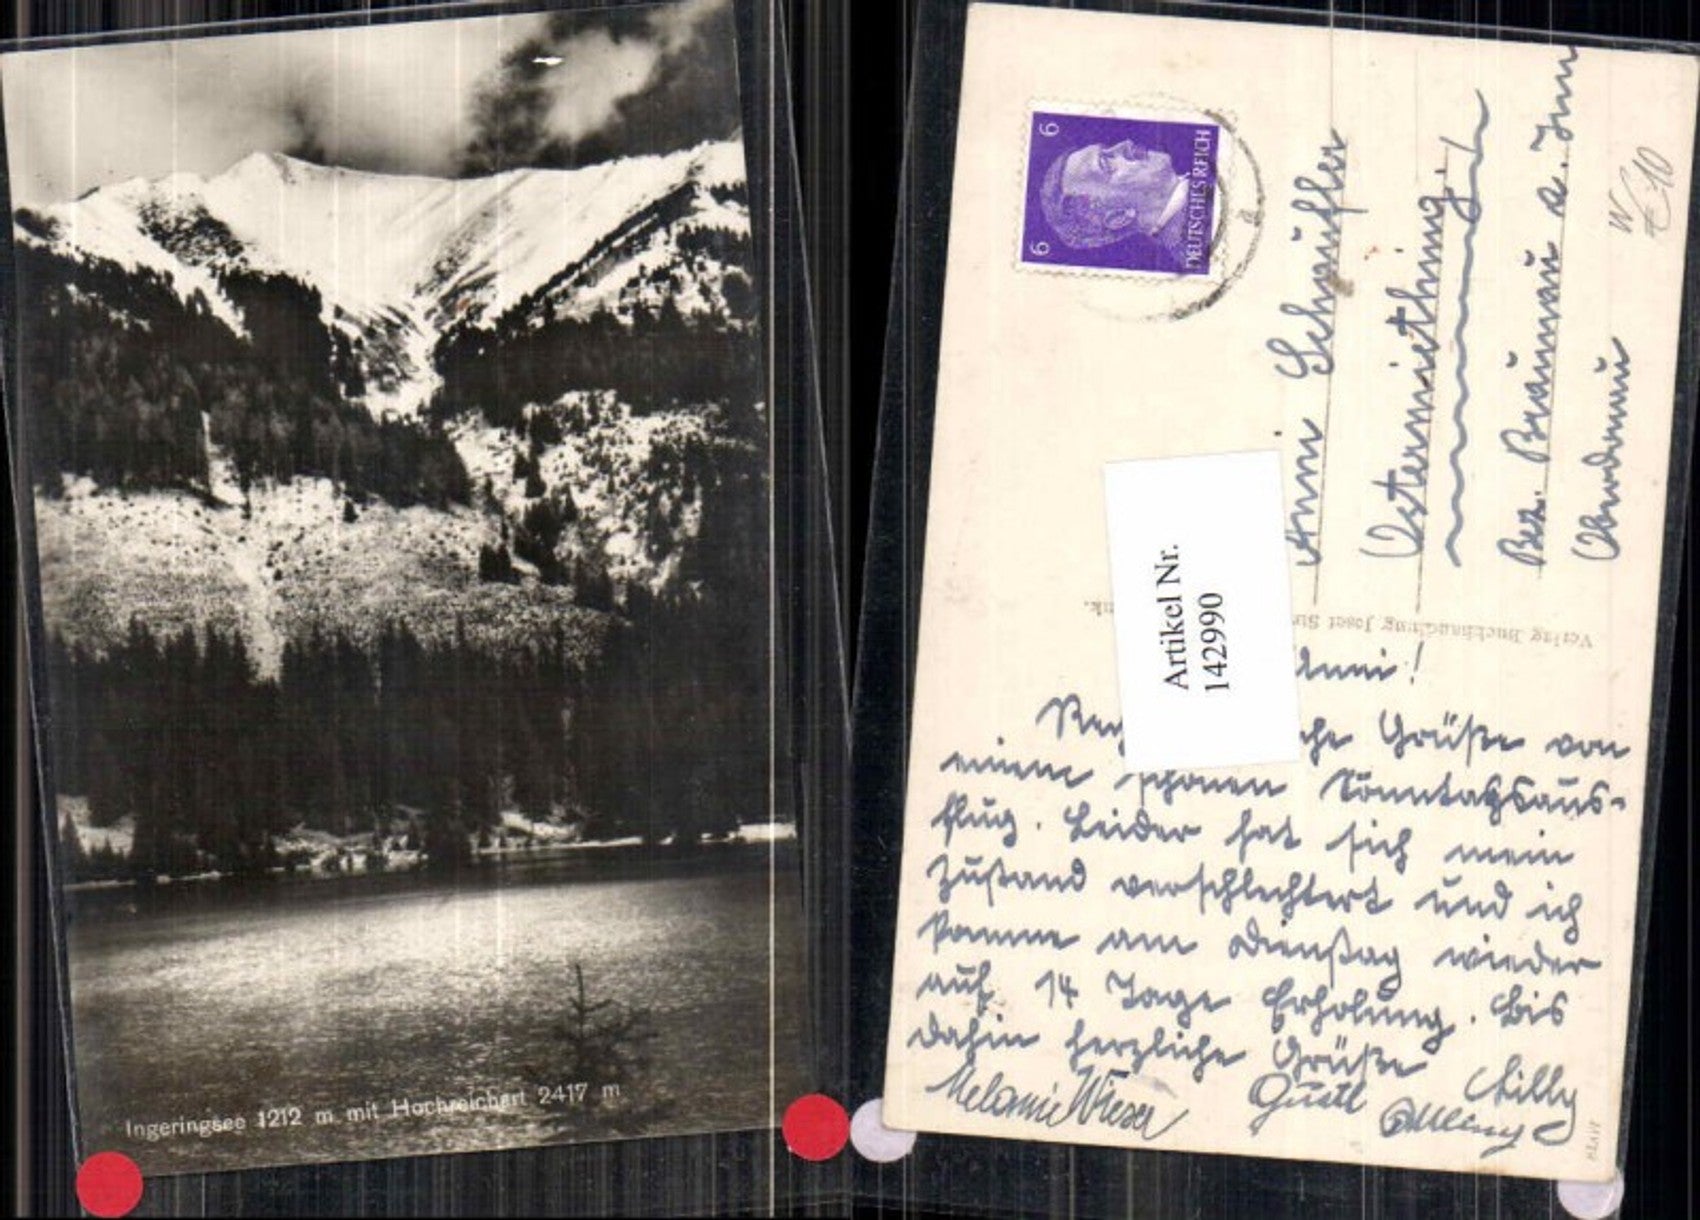 Ingeringsee 1212 m mit Hochreichart 2417 m
6
6
DEUTSCHES REICH
Anni
Ostermiething
Bez. Braunau a. Inn
Oberdonau
€ 10
Artikel Nr.
142990
Verlag Buchhandlung Josef
Anni!
Grüße von
einem schönen Sonntagsaus-
flug. Leider hat sich mein
Zustand verschlechtert und ich
komme am Dienstag wieder
auf 14 Tage Erholung. Bis
dahin herzliche Grüße
Melanie Wieser Gustl Cilly